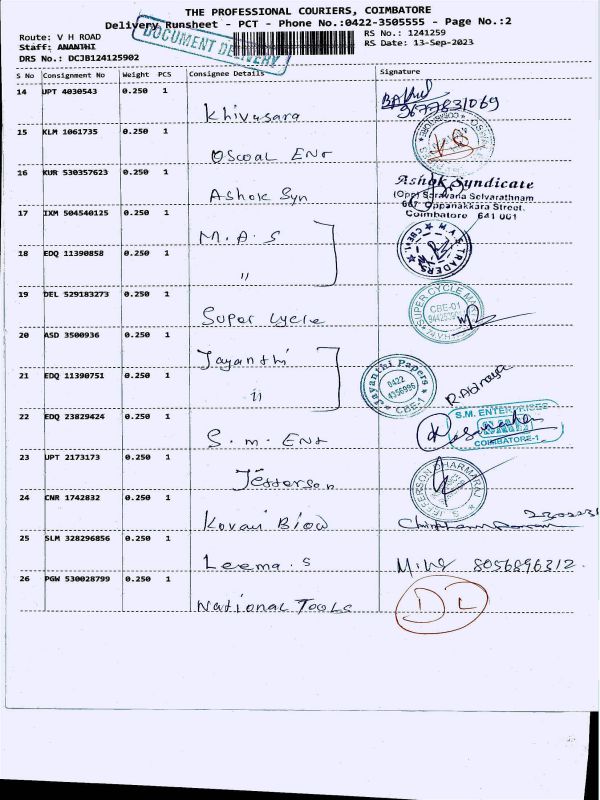 THE PROFESSIONAL COURIERS, COIMBATORE
Delivery Runsheet - PCT - Phone No.:0422-3505555 - Page No.:2
DOCUMENT DELIVERY
Route: V H ROAD
RS No.: 1241259
Staff: ANANTHI
RS Date: 13-Sep-2023
DRS No.: DCJB124125902
S No Consignment No Weight PCS Consignee Details Signature
14 UPT 4030543 0.250 1 Khivasara 9677831069
15 KLM 1061735 0.250 1 Oscoal Ent
16 KUR 530357623 0.250 1 Ashok Syn
Ashok Syndicate
(Opp) Saravana Selvarathnam
667 Oppanakkara Street.
Coimbatore 641 001
17 IXM 504540125 0.250 1 M.A.S
18 EDQ 11390858 0.250 1 "
M.A.S TRADERS CBE-1
19 DEL 529183273 0.250 1 Super Cycle
SUPER CYCLE CBE-01
20 ASD 3500936 0.250 1 Jayanthi
21 EDQ 11390751 0.250 1 "
Jayanthi Papers 0422 4356996 CBE-1
R. Abinaya
22 EDQ 23829424 0.250 1 S.m. Ent
S.M. ENTERPRISES
COIMBATORE-1
23 UPT 2173173 0.250 1 Jefferson
S. JEFFERSON DHARMARAJ
24 CNR 1742832 0.250 1 Kovai Biow
25 SLM 328296856 0.250 1 Leema.s 8056896312
26 PGW 530028799 0.250 1 National Tools DL